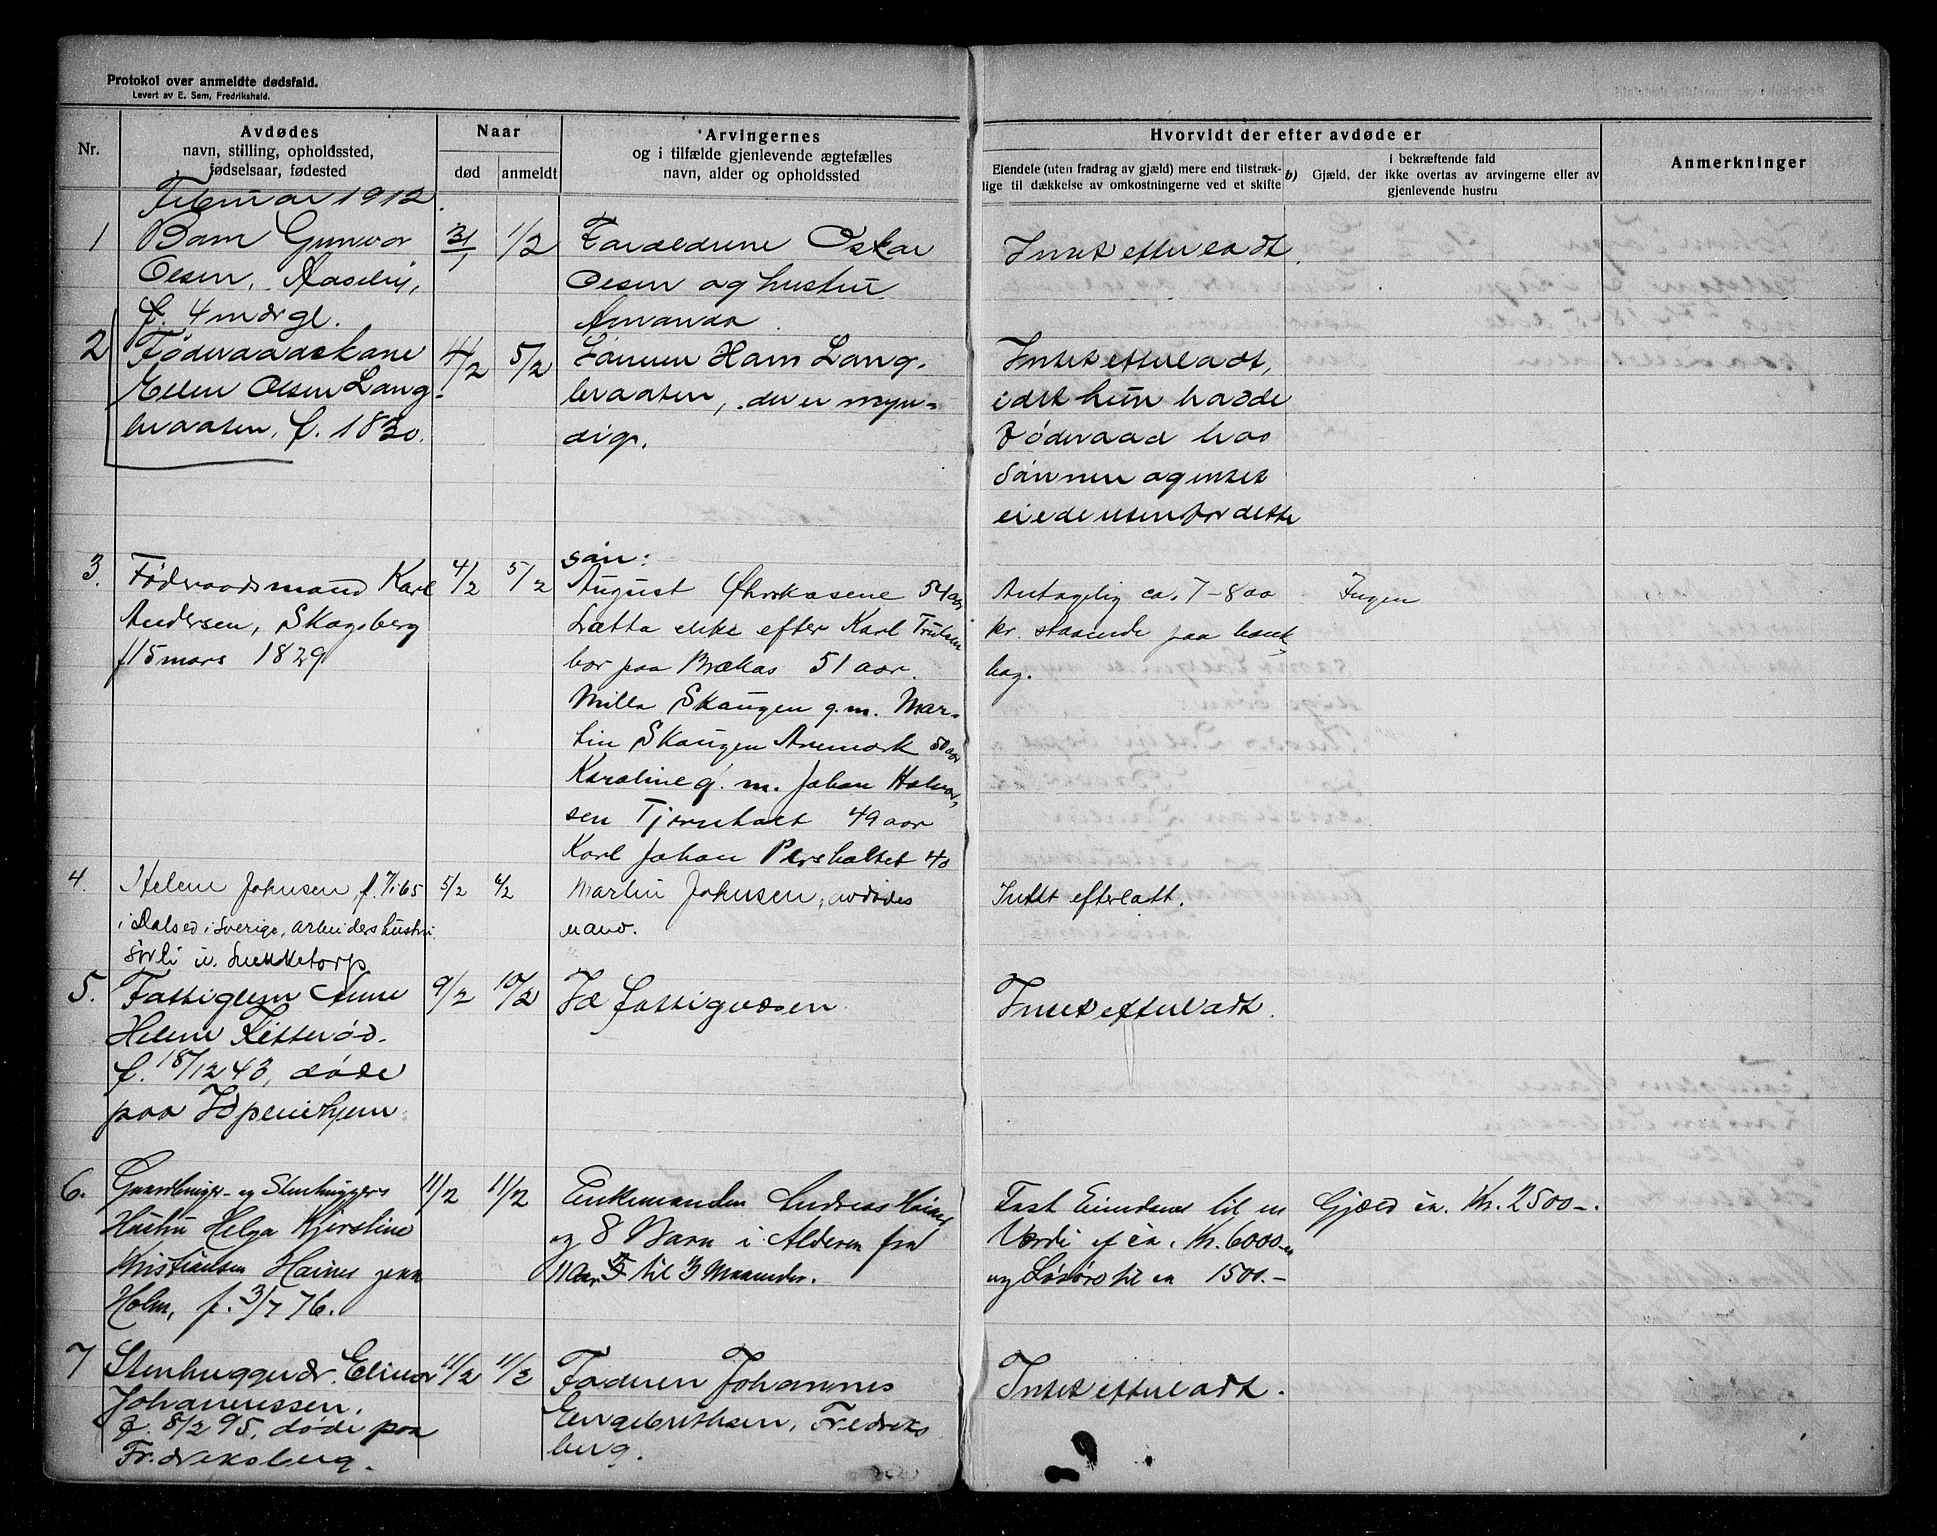 Protokol over anmeldte dødsfald.
Levert av E. Sem, Fredrikshald.
Nr.
Avdødes
navn, stilling, opholdssted,
fødselsaar, fødested
Naar
død
anmeldt
Arvingernes
og i tilfælde gjenlevende ægtefælles
navn, alder og opholdssted
Hvorvidt der efter avdøde er
Eiendele (uten fradrag av gjæld) mere end tilstræk-
lige til dækkelse av omkostningerne ved et skifte
b)
i bekræftende fald
Gjæld, der ikke overtas av arvingerne eller av
gjenlevende hustru
Anmerkninger
Februar 1912.
1
Barn Gunvor
Olsen, Aaseby,
f. 4 mdr gl.
31/1
1/2
Forældrene Oskar
Olsen og hustru
Amanda
Intet efterladt.
2
Føderaadskone
Ellen Olsen Lang-
braaten, f. 1830.
4/2
5/2
Sønnen Hans Lang-
braaten, der er myn-
dig.
Intet efterladt,
idet hun hadde
føderaad hos
sønnen og intet
eiede utenfor dette
3.
Føderaadsmand Karl
Andersen, Skogsberg
f 15 mars 1829
4/2
5/2
søn:
August 54 aar
Lætta enke efter Karl
bor paa Brækas 51 aar.
Milla Skaugen g. m. Mar-
tin Skaugen Aremark 50 aar
Karoline g. m. Johan Halvor-
sen 49 aar
Karl Johan Persholtet 40
Antagelig ca. 7-800
kr. staaende paa bank-
bog.
Ingen
4.
Helene Johnsen, f. 65
i Dalsed i Sverige, arbeidershustru
Sørli u.
5/2
6/2
Martin Johnsen, avdødes
mand.
Intet efterlatt.
5.
Fattiglem Anne
Helene
f. 18/12 43, døde
paa Id pleiehjem
9/2
10/2
Id fattigvæsen
Intet efterladt.
6.
Gaardbruger- og Stenhuggers
Hustru Helga Kjerstine
Kristiansen Haines
Holm, f. 3/7 76.
11/2
11/2
Enkemanden Andreas
og 8 Barn i Alderen fra
til 3 Maaneder.
Fast Eiendom til en
Verdi af ca. Kr. 6000.-
og Løsøre til ca 1500.-
Gjæld ca. Kr. 2500-.
7
Stenhuggerdr. Elinor
Johannessen.
f. 8/2 95, døde paa
Fredriksberg.
11/2
11/2
Faderen Johannes
Engebrethsen, Fredriks
berg.
Intet efterladt.